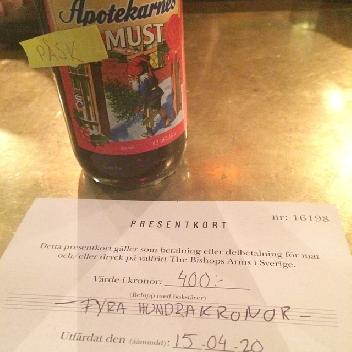 Apotekarnes
PÅSK
MUST
PRESENTKORT
nr: 16198
Detta presentkort gäller som betalning eller delbetalning för mat
och/eller dryck på valfritt The Bishops Arms i Sverige.
Värde i kronor: 400:-
(Belopp med bokstäver)
- FYRA HUNDRA KRONOR -
Utfärdat den (åååmmdd): 15-04-20